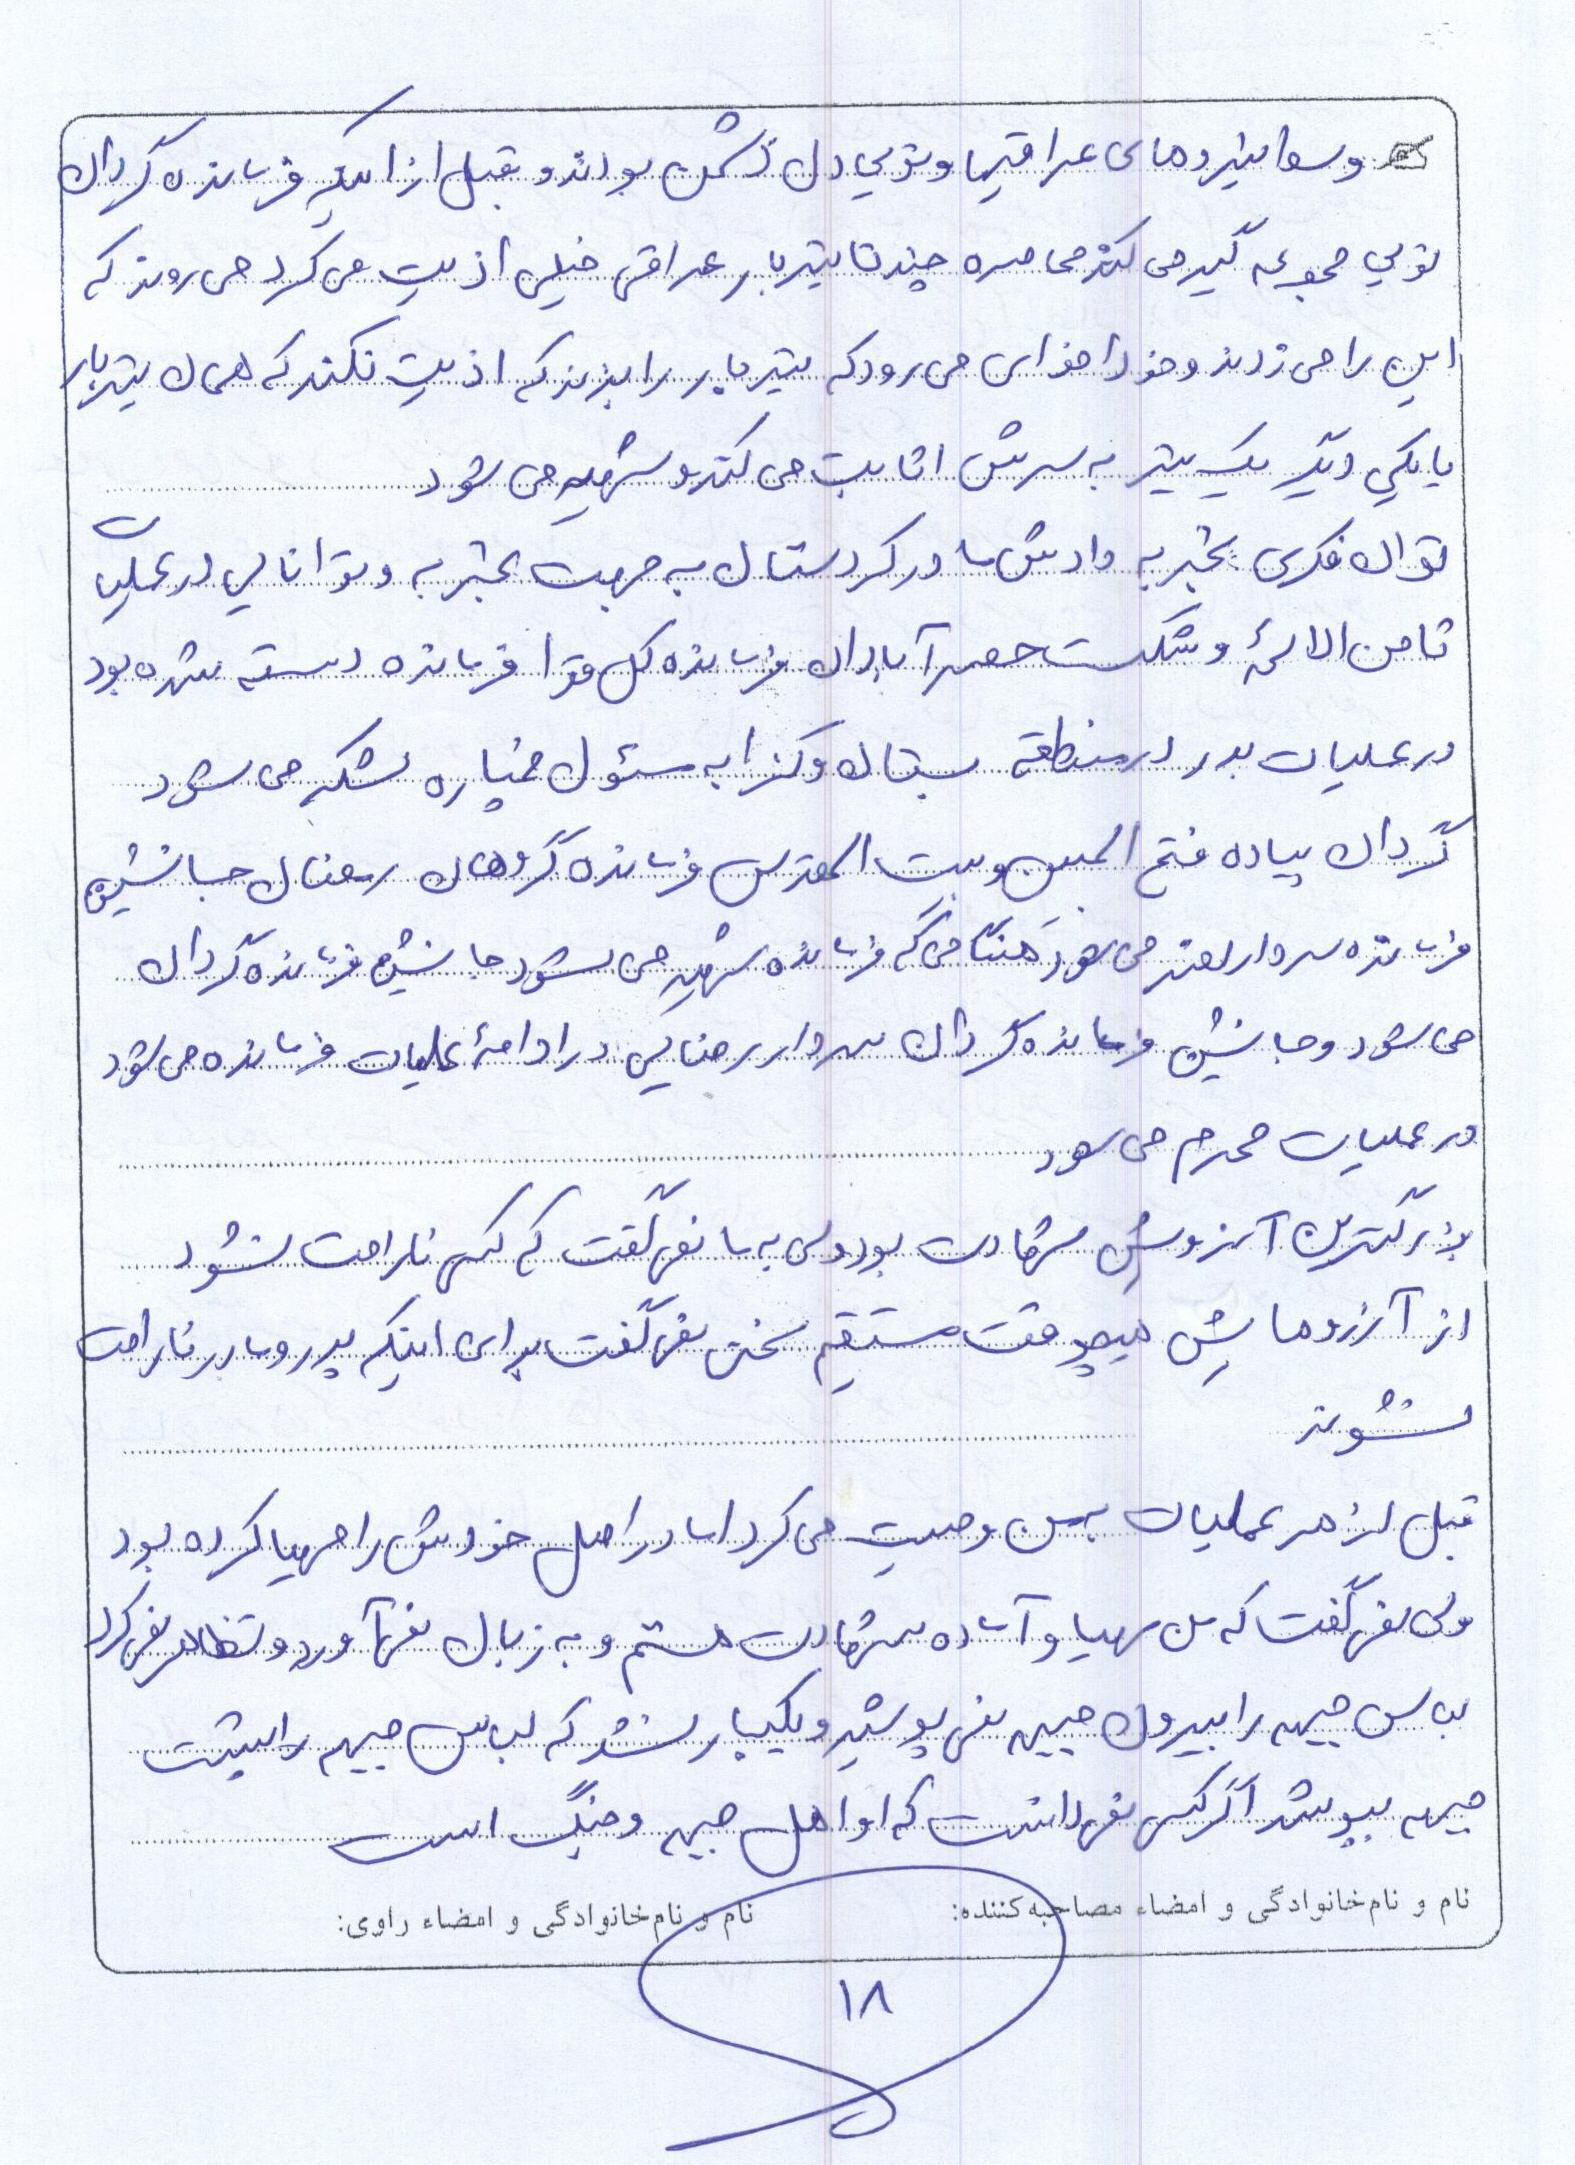 وسط نیروهای عراقیها و توی دل دشمن بودند و قبل از اینکه فرمانده گردان
توی مجموعه گیر می کند می صره چند تا تیربار عراقی خیلی اذیت می کرد می روند که
این را می زدند و خود اخوای می رود که تیربار را بزند که اذیت نکند که همان تیربار
یا یکی دیگر یک تیر به سرش اثابت می کند و شهید می شود
توان فکری تجربه دادش ما در کردستان به جهت تجربه و توانایی در عملیات
ثامن الائمهٔ و شکست حصر آبادان فرمانده کل قوا فرمانده دسته شده بود
در عملیات بدر در منطقه بستان و کذابه مسئول خمپاره لشکر می شود
گردان پیاده فتح المبین و بیت المقدس فرمانده گروهان رمضان جانشین
فرمانده سردار می شود هنگامی که فرمانده شهید می شود جانشین فرمانده گردان
می شود و جانشین فرمانده گردان سردار رضایی در ادامهٔ عملیات فرمانده می شود
در عملیات محرم می شود
بزرگترین آرزوش شهادت بود ولی به ما نمی گفت که کسی ناراحت نشود
از آرزوهایش هیچ وقت مستقیم سخن نمی گفت برای اینکه پدر و مادر ناراحت
نشوند
قبل از هر عملیات به من وصیت می کرد اما در اصل خودش را مهیا کرده بود
ولی نمی گفت که من مهیا و آماده شهادت هستم و به زبان نمی آورد و تظاهر نمی کرد
لباس جبهه را بیرون جبهه نمی پوشید و یکبار نشد که لباس جبهه را پشت
جبهه بپوشد اگر کسی نمی دانست که او اهل جبهه و جنگ است
نام و نام‌خانوادگی و امضاء مصاحبه‌کننده: نام و نام‌خانوادگی و امضاء راوی:
۱۸